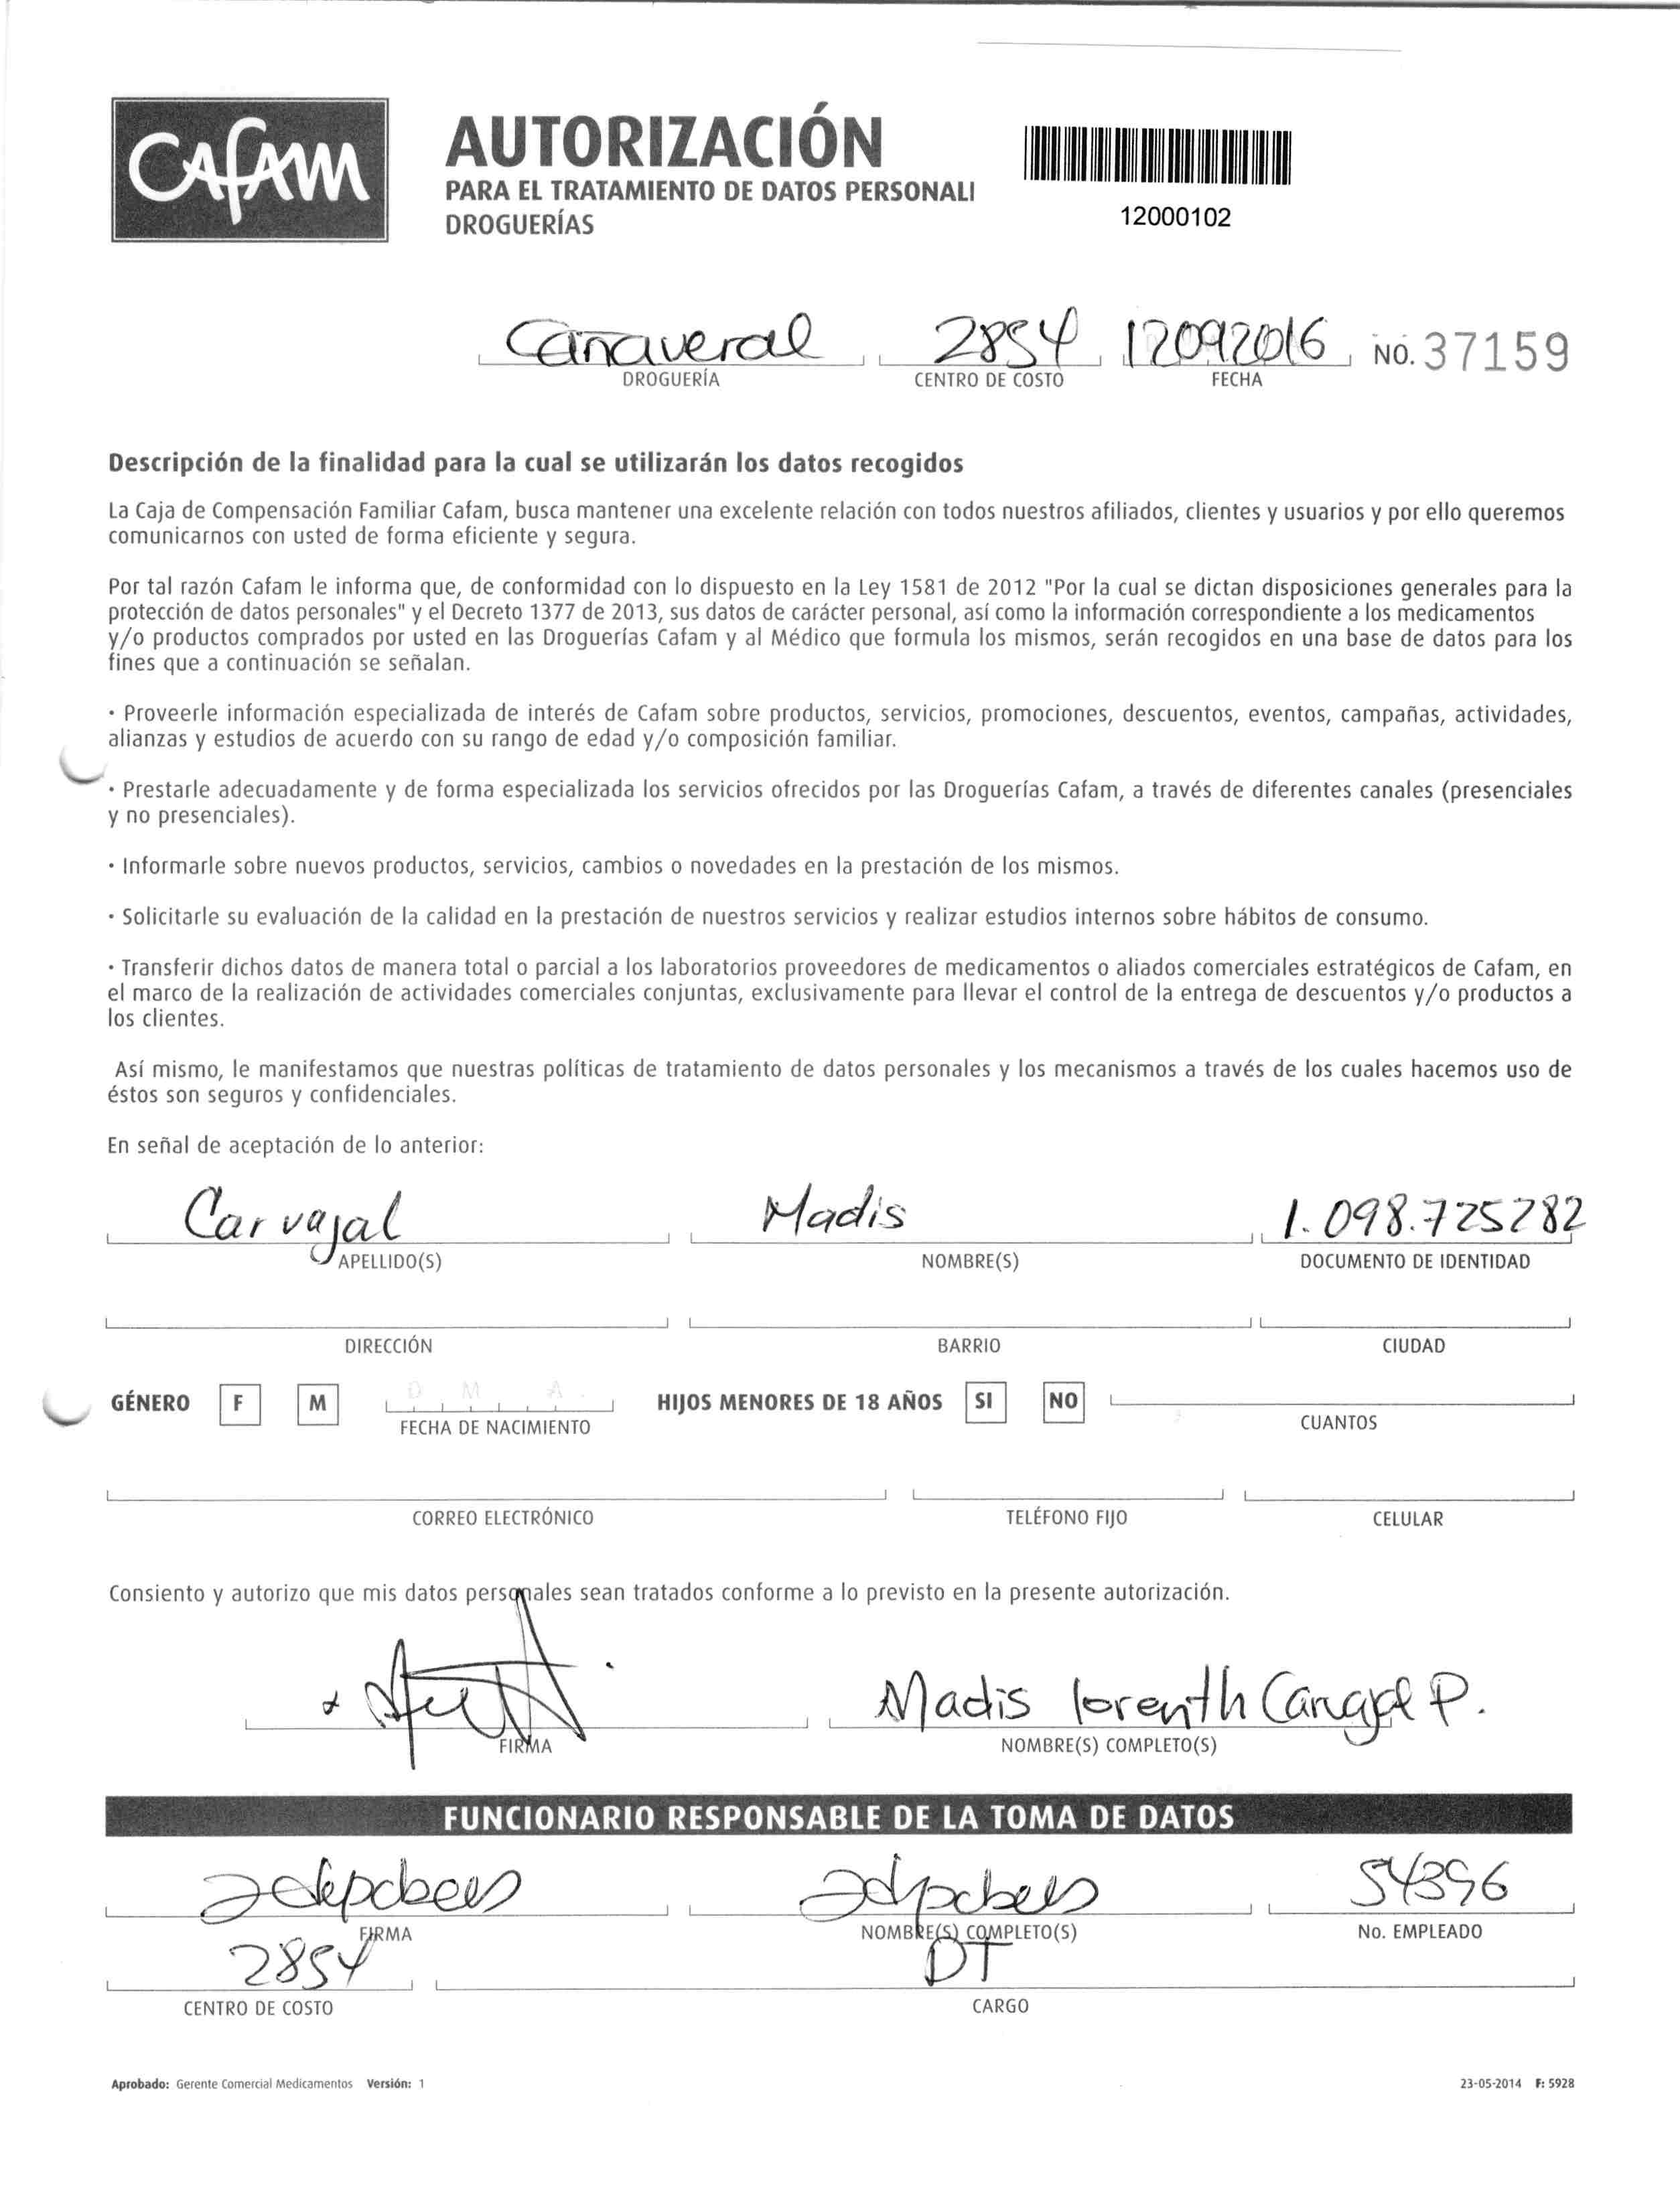 CAFAM
AUTORIZACIÓN
PARA EL TRATAMIENTO DE DATOS PERSONALI
DROGUERÍAS
12000102
Cañaveral 2854 12092016 NO. 37159
DROGUERÍA CENTRO DE COSTO FECHA
Descripción de la finalidad para la cual se utilizarán los datos recogidos
La Caja de Compensación Familiar Cafam, busca mantener una excelente relación con todos nuestros afiliados, clientes y usuarios y por ello queremos
comunicarnos con usted de forma eficiente y segura.
Por tal razón Cafam le informa que, de conformidad con lo dispuesto en la Ley 1581 de 2012 "Por la cual se dictan disposiciones generales para la
protección de datos personales" y el Decreto 1377 de 2013, sus datos de carácter personal, así como la información correspondiente a los medicamentos
y/o productos comprados por usted en las Droguerías Cafam y al Médico que formula los mismos, serán recogidos en una base de datos para los
fines que a continuación se señalan.
· Proveerle información especializada de interés de Cafam sobre productos, servicios, promociones, descuentos, eventos, campañas, actividades,
alianzas y estudios de acuerdo con su rango de edad y/o composición familiar.
· Prestarle adecuadamente y de forma especializada los servicios ofrecidos por las Droguerías Cafam, a través de diferentes canales (presenciales
y no presenciales).
· Informarle sobre nuevos productos, servicios, cambios o novedades en la prestación de los mismos.
· Solicitarle su evaluación de la calidad en la prestación de nuestros servicios y realizar estudios internos sobre hábitos de consumo.
· Transferir dichos datos de manera total o parcial a los laboratorios proveedores de medicamentos o aliados comerciales estratégicos de Cafam, en
el marco de la realización de actividades comerciales conjuntas, exclusivamente para llevar el control de la entrega de descuentos y/o productos a
los clientes.
Así mismo, le manifestamos que nuestras políticas de tratamiento de datos personales y los mecanismos a través de los cuales hacemos uso de
éstos son seguros y confidenciales.
En señal de aceptación de lo anterior:
Carvajal Madis 1.098.725282
APELLIDO(S) NOMBRE(S) DOCUMENTO DE IDENTIDAD
DIRECCIÓN BARRIO CIUDAD
GÉNERO F M D M A HIJOS MENORES DE 18 AÑOS SI NO
FECHA DE NACIMIENTO CUANTOS
CORREO ELECTRÓNICO TELÉFONO FIJO CELULAR
Consiento y autorizo que mis datos personales sean tratados conforme a lo previsto en la presente autorización.
Madis lorenth P.
FIRMA NOMBRE(S) COMPLETO(S)
FUNCIONARIO RESPONSABLE DE LA TOMA DE DATOS
54396
FIRMA NOMBRE(S) COMPLETO(S) No. EMPLEADO
2854 DT
CENTRO DE COSTO CARGO
Aprobado: Gerente Comercial Medicamentos Versión: 1 23-05-2014 F: 5928